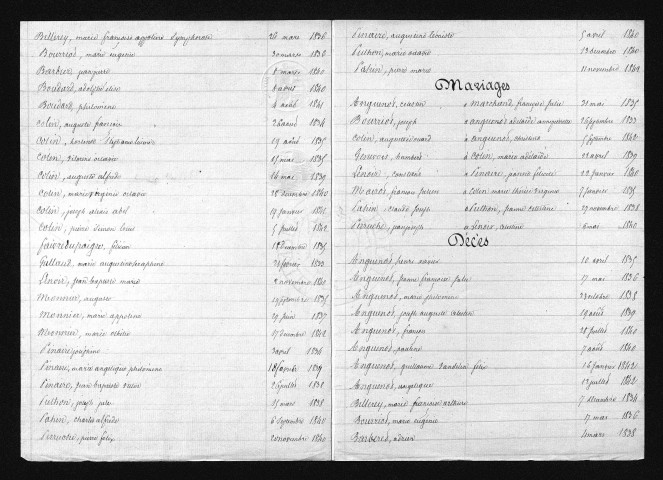 Billerey, marie françoise appoline Symphorose 26 mars 1836
Bourriod, marie eugénie 30 mars 1836
Barbier, 8 mars 1840
Boudard, adolphe 8 avril 1840
Boudard, philomène 4 août 1841
Colin, auguste francois 26 août 1834
Colin, hortense Stéphanie 29 août 1835
Colin, victorine octavie 15 mai 1835
Colin, auguste alfred 16 mai 1839
Colin, marie virginie octavie 28 décembre 1840
Colin, joseph alexis abel 19 janvier 1842
Colin, pierre simon louis 5 juillet 1842
favredupaigre, 18 décembre 1835
Gallaud, marie augustine séraphine 28 février 1833
Lenoir, jean baptiste marie 2 novembre 1840
Monnier, auguste 18 septembre 1835
Monnier, marie appoline 29 juin 1837
Monnier, marie 17 décembre 1842
Pinaire, 2 avril 1834
Pinaire, marie angelique philomène 1839
Pinaire, jean baptiste 26 juillet 1838
Puthon, joseph jule 15 mars 1838
Pahin, charles alfred 6 septembre 1840
Perruche, pierre félix 20 novembre 1840
Pinaire, augustine léonide 5 avril 1840
Puthon, marie octavie 13 décembre 1840
Pahin, pierre marie 11 novembre 1841
Mariages
Anguenot, à marchand, françoise julie 21 mai 1835
Bourriod, joseph à anguenot adelaïde 26 septembre 1833
Colin, auguste édouard à anguenot, christine 5 septembre 1842
Genevois, à Colin, marie adélaïde 22 avril 1839
Lenoir, constant à Pinaire, jeanne félicité 22 janvier 1840
Mairot, françois julien à Colin marie thérèse virginie 7 janvier 1835
Pahin, claude joseph à Puthon, jeanne célestine 29 novembre 1838
Perruche, à Lenoir, 6 mai 1840
Décès
Anguenot, pierre xavier 10 avril 1835
Anguenot, jeanne françoise julie 17 mai 1836
Anguenot, marie philomène 23 octobre 1838
Anguenot, joseph auguste célestin 19 août 1839
Anguenot, françois 28 juillet 1840
Anguenot, pauline 7 août 1840
Anguenot, guillaume félix 16 janvier 1842
Anguenot, angelique 12 juillet 1842
Billerey, marie françoise 7 décembre 1834
Bourriod, marie eugénie 17 mai 1836
Barberet, adrien 4 mars 1838